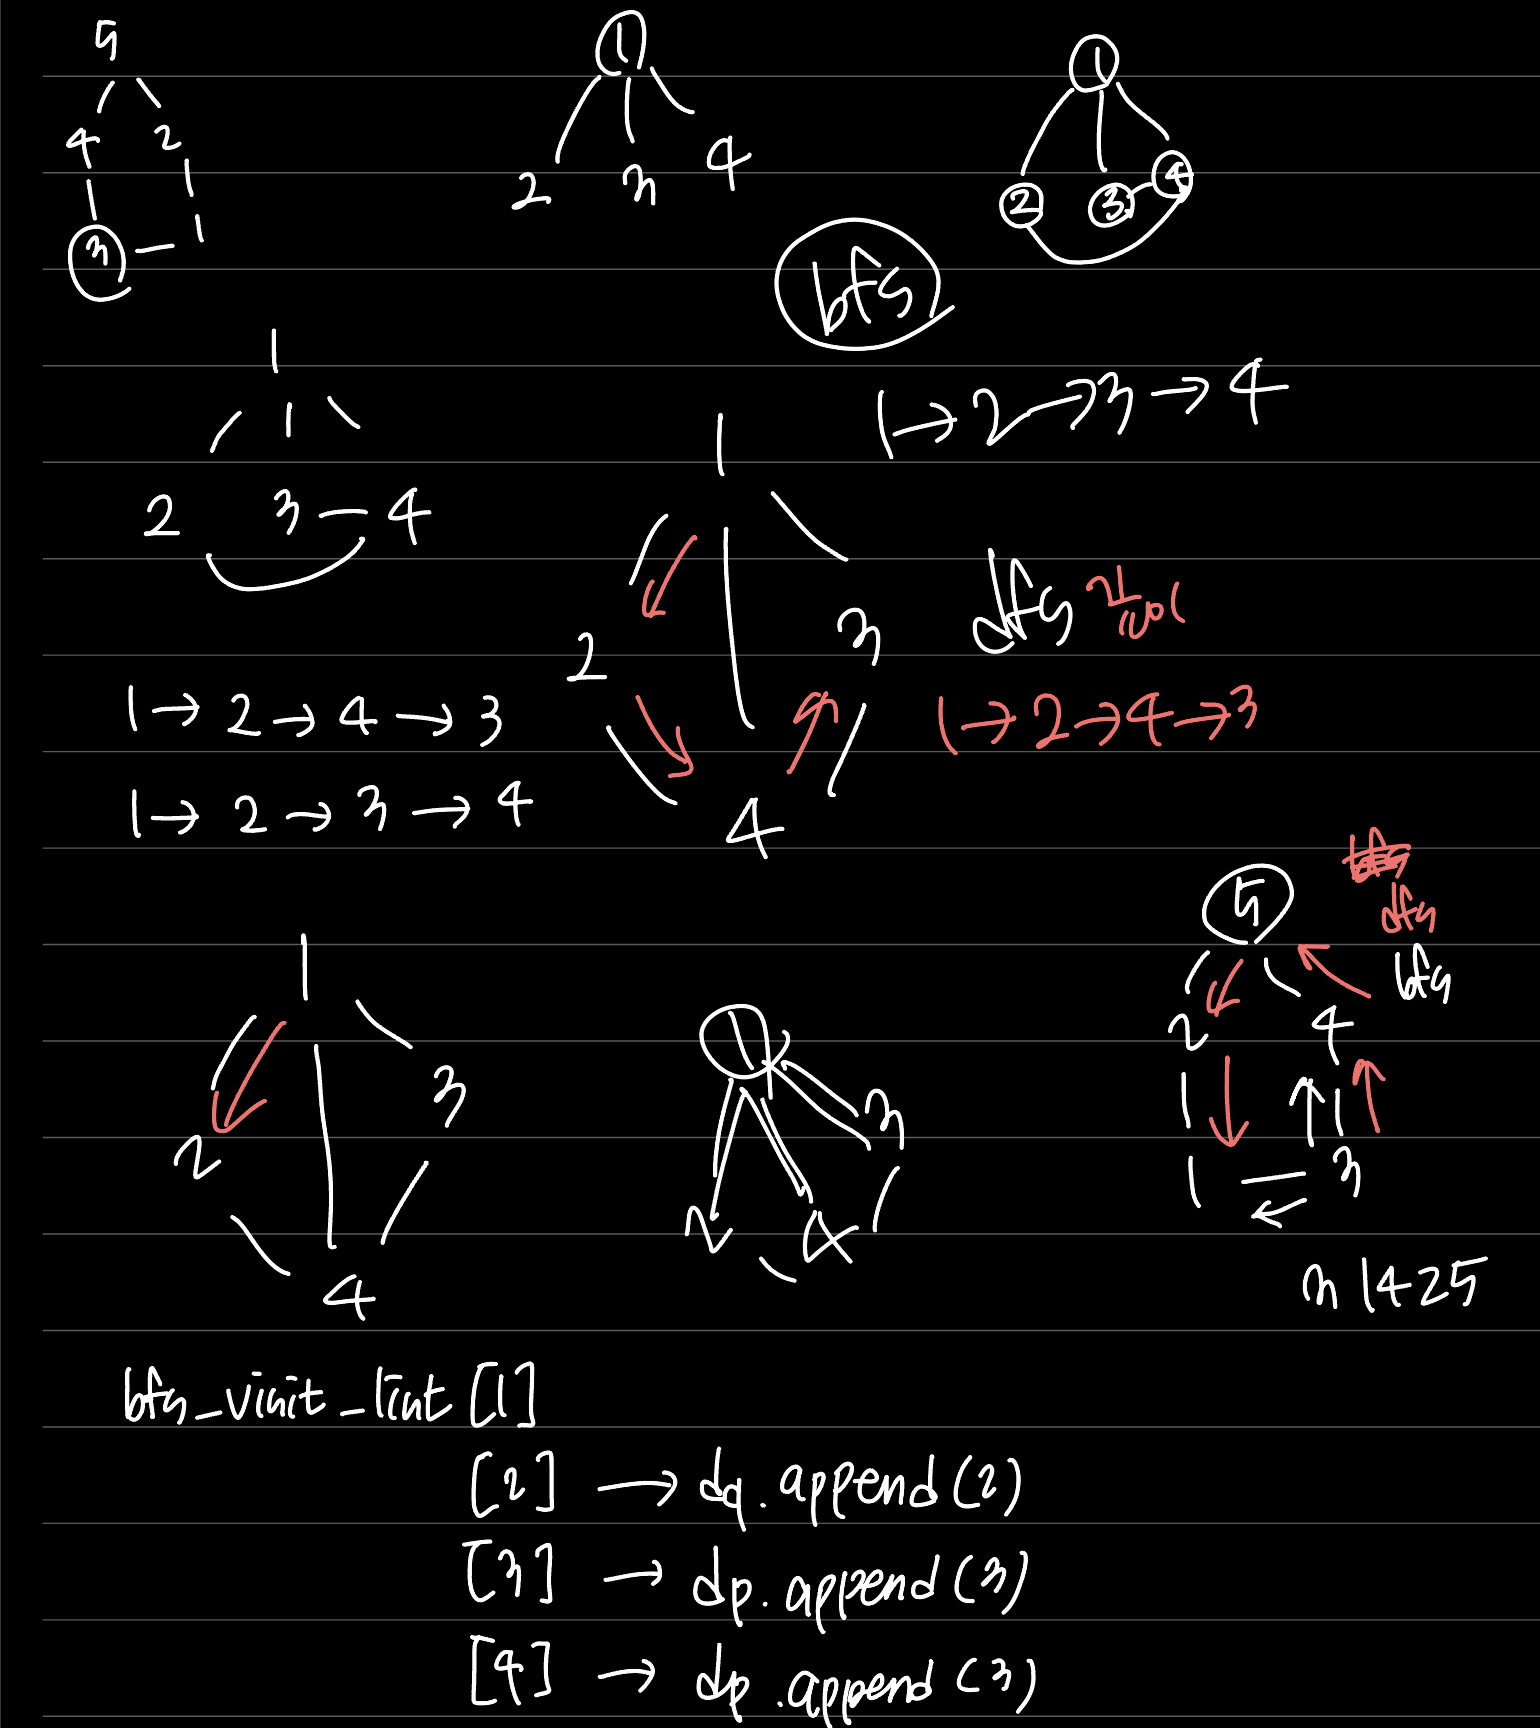 5
4 2
3 1
1
2 3 4
1
2 3 4
bfs
1
2 3 4
1→2→3→4
1
2 3
4
dfs 깊이
1→2→4→3
1→2→4→3
1→2→3→4
1
2 3
4
1
2 4 3
5
dfs
bfs
2 4
1 3
3 1 4 2 5
bfs_visit_list [1]
[2] → dq.append(2)
[3] → dp.append(3)
[4] → dp.append(3)